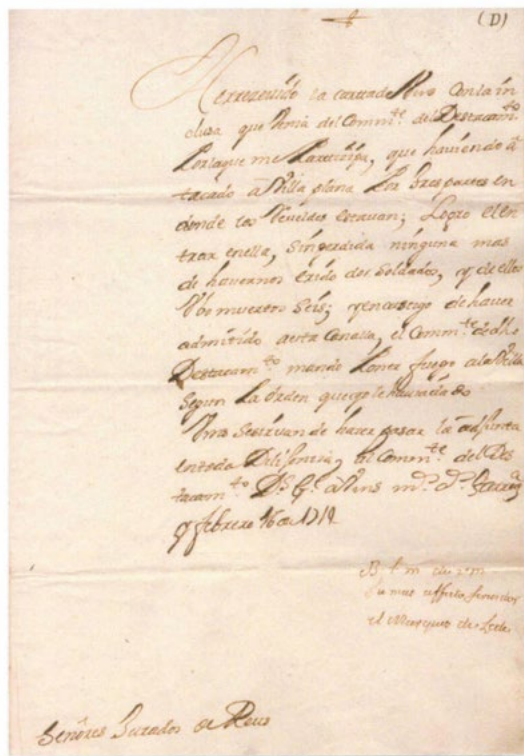 (D)
He rrecevido la carta de Vms con la in
clusa que venia del Comm.te del Destacam.to
Por la que me Partizipa, que haviendo a
tacado à Villa plana Por tres partes en
donde los Reveldes estavan; Logro el en
trar en ella, sin perdida ninguna mas
de havernos erido dos Soldados, y de ellos
Vbo muertos Seis; y en castigo de haver
admitido a esta Canalla, el Comm.te de dho
Destacam.to mando Poner fuego a la Villa
Segun la orden que yo le havia dado
Vms Se sirvan de hacer pasar la adjunta
en toda Dilijencia, al Comm.te del Des
tacam.to D.s G.e à Vms m.s a.s
y febrero 16 de 1714
B. l. m. de Vm
Su mas affecto servidor
el Marques de Lede
Señores Jurados de Reus